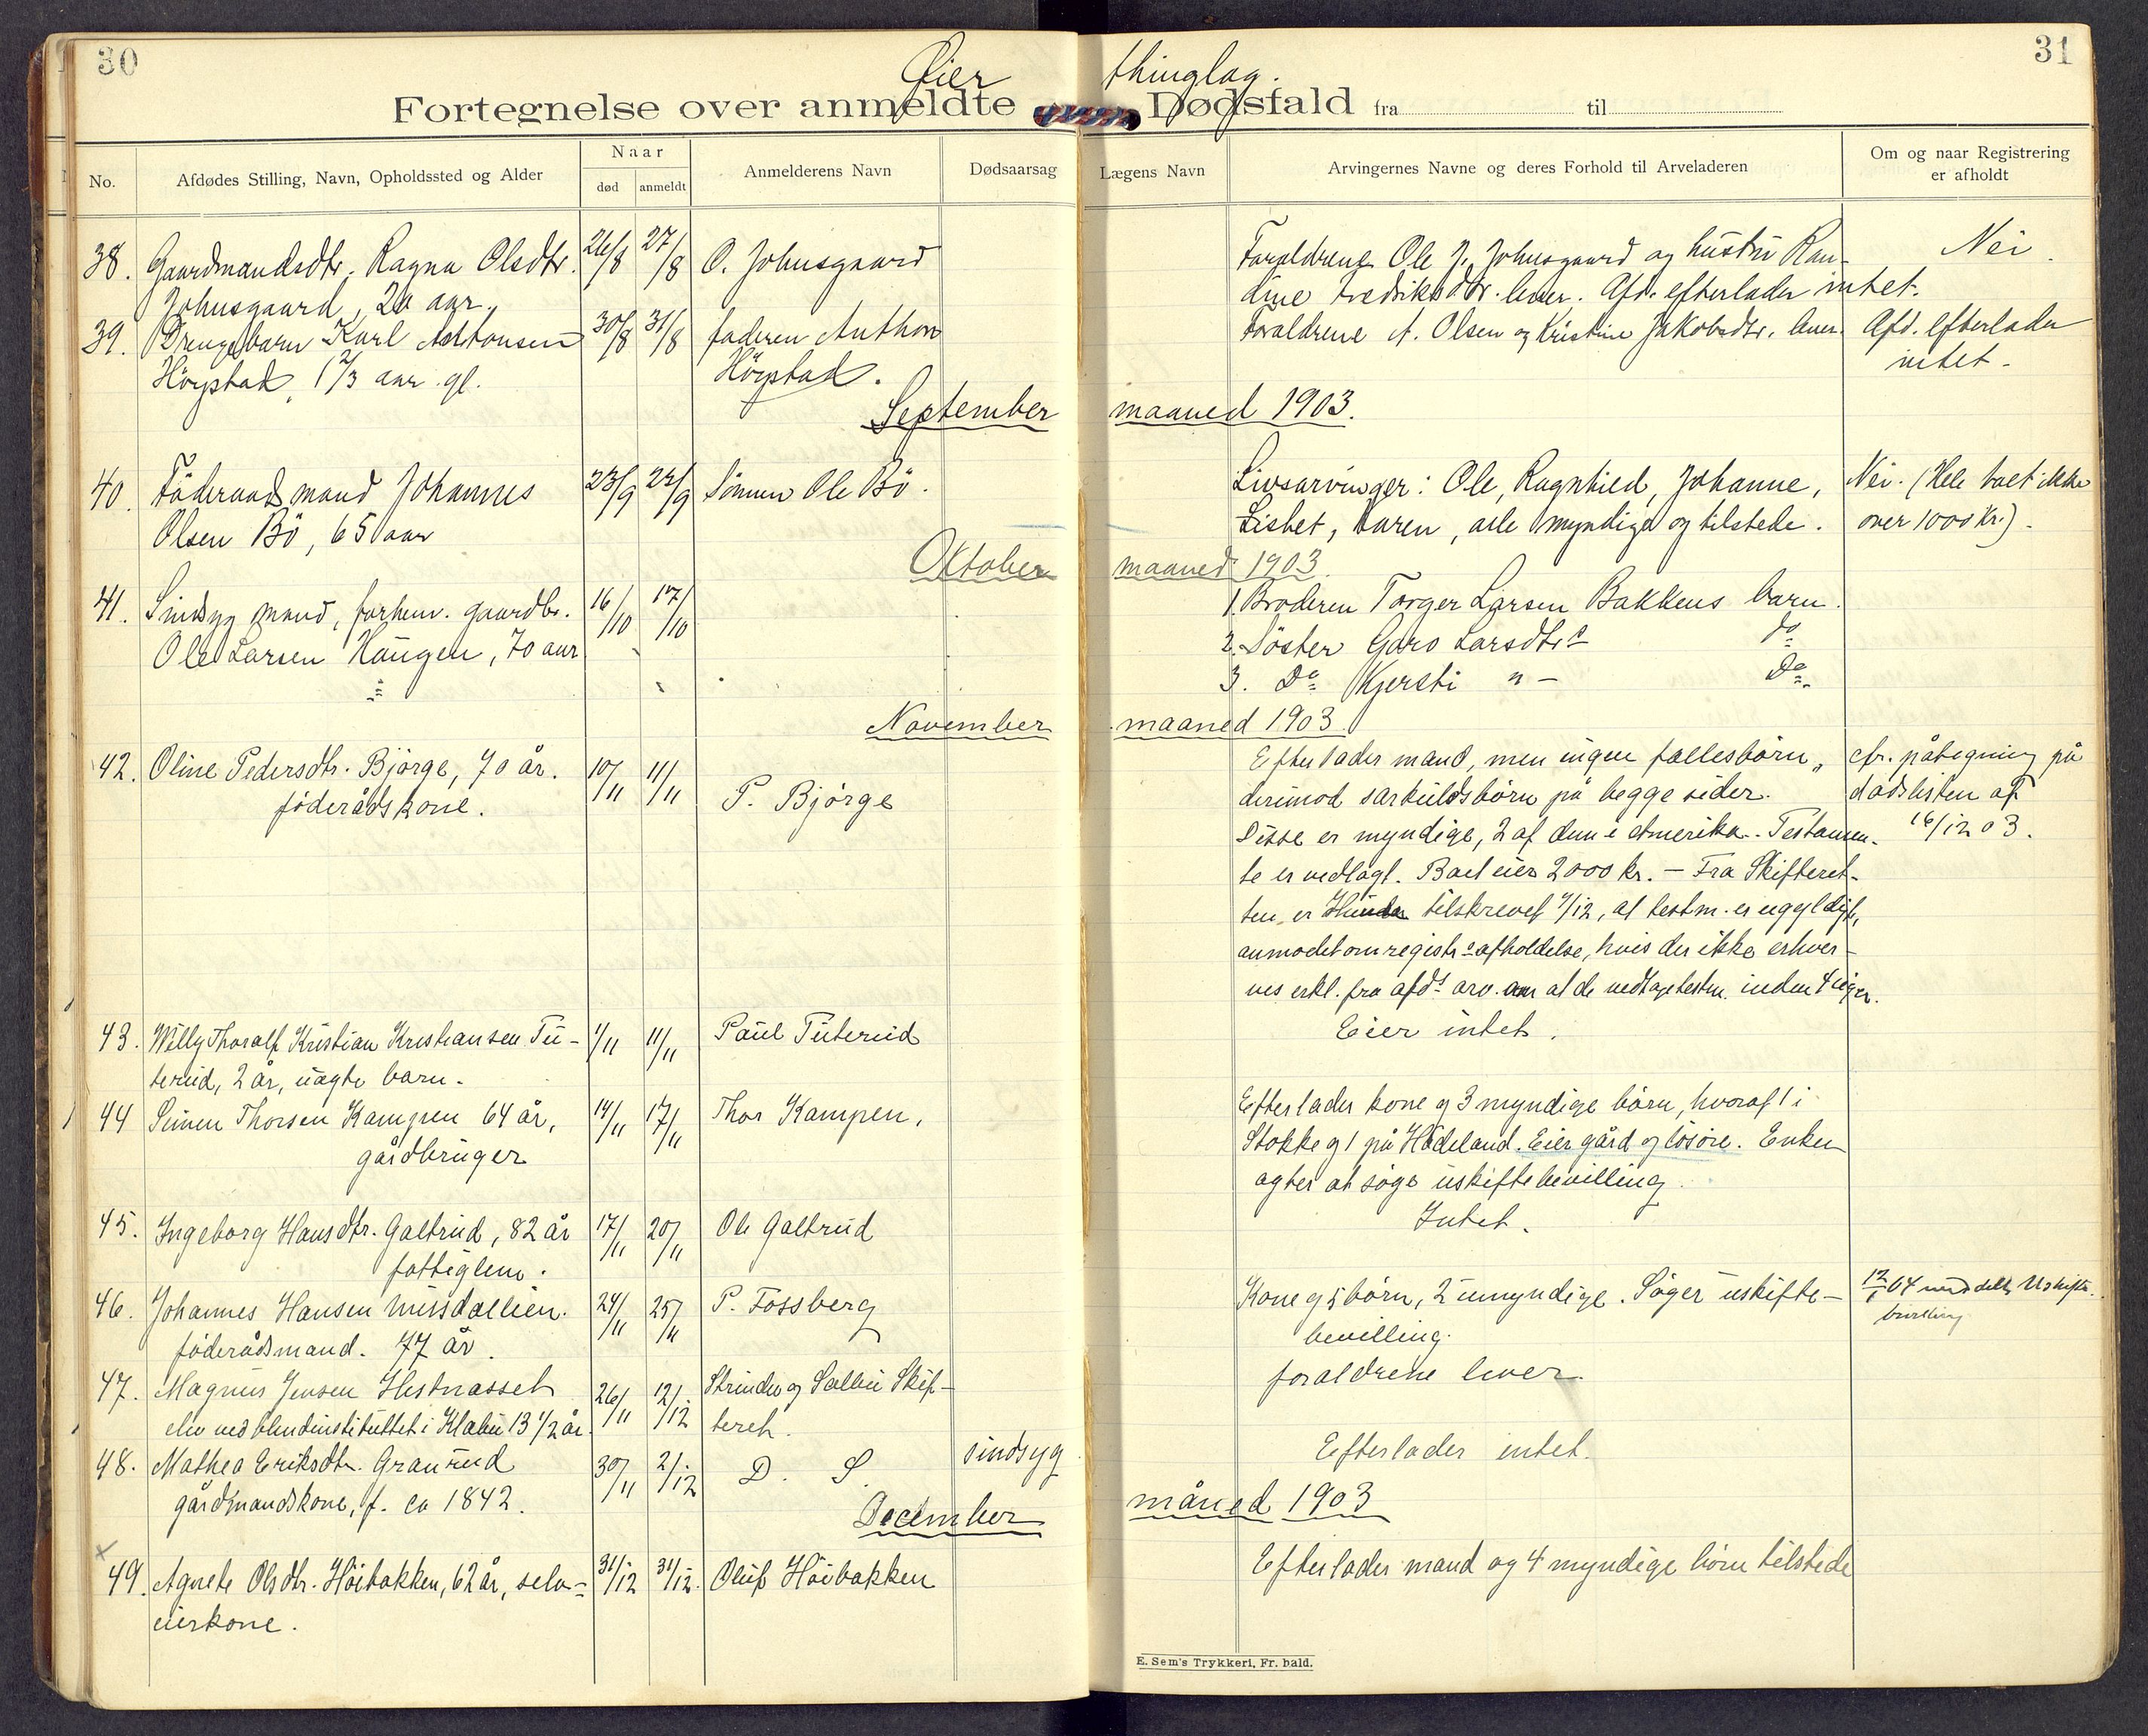 30
31
Øier thinglag.
Fortegnelse over anmeldte Dødsfald fra til
No.
Afdødes Stilling, Navn, Opholdssted og Alder
Naar
død
anmeldt
Anmelderens Navn
Dødsaarsag
Lægens Navn
Arvingernes Navne og deres Forhold til Arveladeren
Om og naar Registrering
er afholdt
38. Gaardmandsdtr. Ragna Olsdtr. 26/8 27/8 O. Johnsgaard Forældrene Ole J. Johnsgaard og hustru Ran- Nei.
Johnsgaard, 20 aar. dine Fredriksdtr. lever. Afd. efterlader intet.
39. Drengebarn Karl Anthonsen 30/8 31/8 faderen Anthon Forældrene A. Olsen og Kristine Jakobsdtr. lever. Afd. efterlader
Hörpstad, 1 2/3 aar gl. Hörpstad. intet.
September maaned 1903.
40. Föderaadsmand Johannes 23/9 22/9 Sönnen Ole Bö. Livsarvinger: Ole, Ragnhild, Johanne, Nei. (Hele boet ikke
Olsen Bö, 65 aar Lisbet, Karen, alle myndige og tilstede. over 1000 Kr.).
Oktober maaned 1903.
41. Sindsyg mand, forhenv. gaardbr. 16/10 17/10 1. Broderen Torger Larsen Bakkens barn.
Ole Larsen Haugen, 70 aar 2. Söster Garo Larsdtrs do
3. Do Kjersti " - Do
November maaned 1903.
42. Oline Pedersdtr. Bjørge, 70 år. 10/11 11/11 P. Bjørge Efterlader mand, men ingen fællesbörn,
föderådskone. derimod særkuldsbörn på begge sider.
cfr. påtegning på
dødslisten af
16/12 03.
Disse er myndige, 2 af dem i Amerika. Testamen-
te er vedlagt. Boet eier 2000 kr. - Fra Skifteret-
ten er tilskrevet /12, at testm. er ugyldigt,
anmodet om registrs afholdelse, hvis der ikke erhver-
ves erkl. fra afds arv. om at de vedtage testm. inden 4 uger.
43. Willy Thoralf Kristian Kristiansen Tu- 1/11 11/11 Paul Tuterud Eier intet.
terud, 2 år, uægte barn.
44 Simen Thorsen Kampen 64 år, 14/11 17/11 Thor Kampen. Efterlader kone og 3 myndige börn, hvoraf 1 i
gårdbruger Stokke og 1 på Hadeland. Eier gård og lösöre. Enken
agter at söge uskiftebevilling.
45. Ingeborg Hansdtr. Galtrud, 82 år 17/11 20/11 Ole Galtrud Intet.
fattiglem.
46. Johannes Hansen Musdallien. 24/11 25/11 P. Fossberg Kone og 5 börn, 2 umyndige. Söger uskifte- 12/1 04 meddelt Uskifte-
föderådsmand. 77 år. bevilling. bevilling
47. Magnus Jensen Hestnasset 26/11 12/12 Strinden og Selbu Skif- forældrene lever.
elev ved blindinstituttet i Klæbu 13 1/2 år. teret.
48. Mathea Eriksdtr. Granrud 30/11 2/12 D. S. sindsyg Efterlader intet.
gårdmandskone, f. ca 1842.
December måned 1903
49. Agnete Olsdtr. Höibakken, 62 år, selv- 31/12 31/12. Oluf Höibakken Efterlader mand og 4 myndige börn tilstede
eierkone.
E. Sem's Trykkeri, Fr. hald.